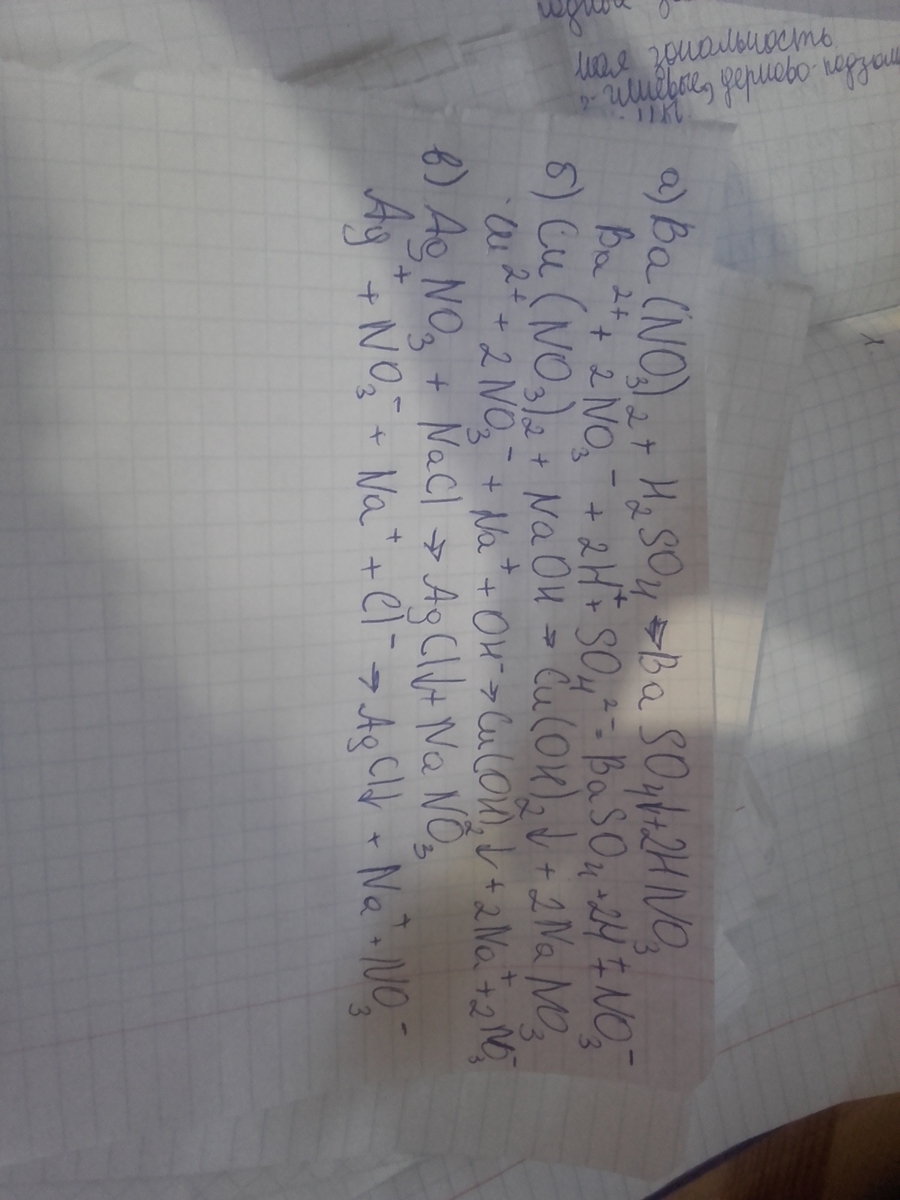 ная зональность
глиевые, дерново-подзол
а) Ba(NO₃)₂ + H₂SO₄ → BaSO₄↓ + 2HNO₃
Ba²⁺ + 2NO₃⁻ + 2H⁺ + SO₄²⁻ = BaSO₄ + 2H⁺ + NO₃⁻
б) Cu(NO₃)₂ + NaOH → Cu(OH)₂↓ + 2NaNO₃
Cu²⁺ + 2NO₃⁻ + Na⁺ + OH⁻ → Cu(OH)₂↓ + 2Na⁺ + 2NO₃⁻
в) AgNO₃ + NaCl → AgCl↓ + NaNO₃
Ag⁺ + NO₃⁻ + Na⁺ + Cl⁻ → AgCl↓ + Na⁺ + NO₃⁻